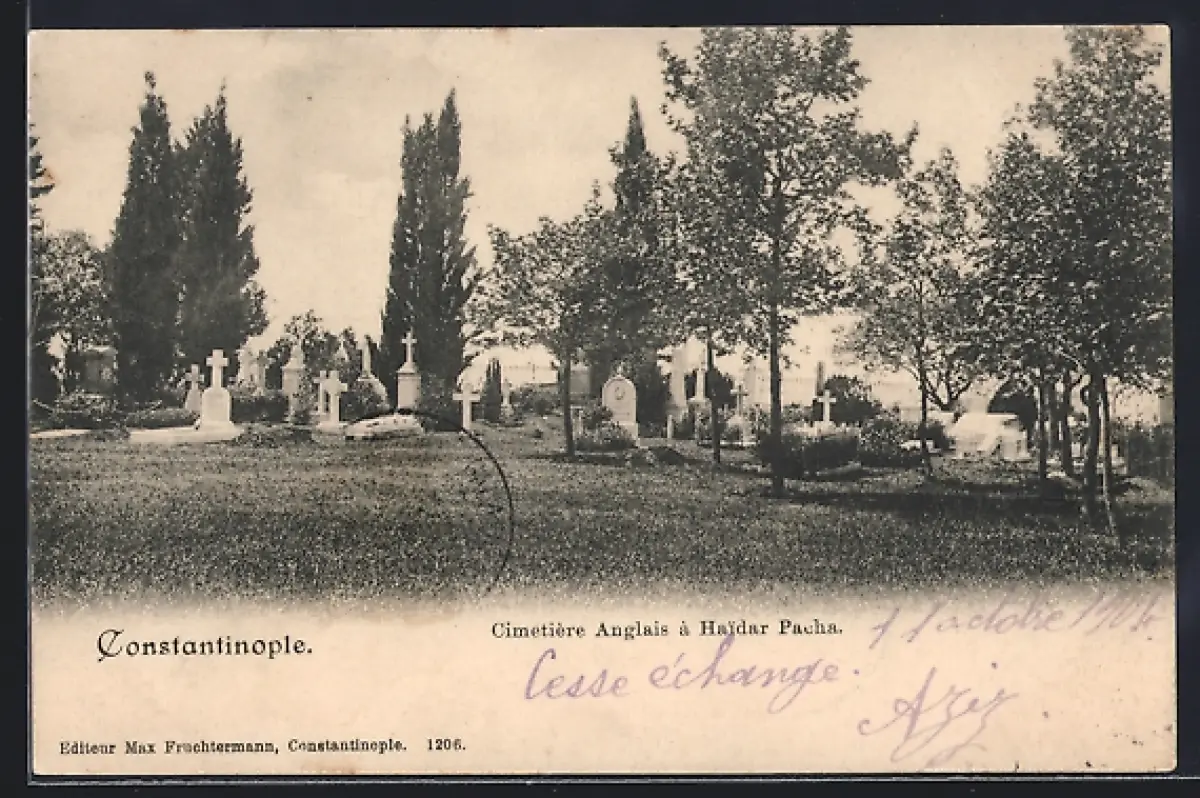 Constantinople.
Cimetière Anglais à Haïdar Pacha.
11 octobre 1904.
Cesse échange.
Aziz
Editeur Max Fruchtermann, Constantinople. 1206.